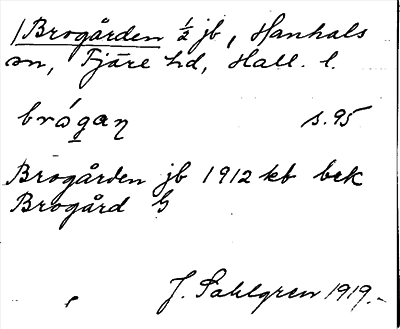 /Brogården ½ jb, Hanhals
sn, Fjäre hd, Hall. l.
brógaṇ s. 95
Brogården jb 1912 kb bek
Brogård G
J. Sahlgren 1919.-